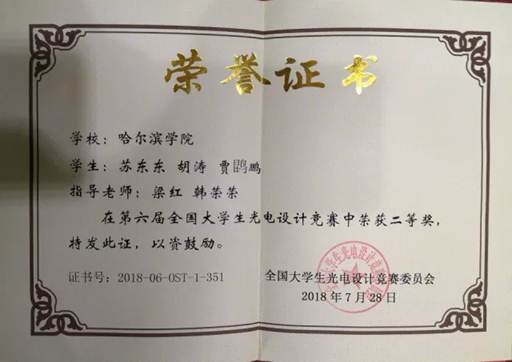 荣誉证书
学校：哈尔滨学院
学生：苏东东 胡涛 贾鹍鹏
指导老师：梁红 韩荣荣
在第六届全国大学生光电设计竞赛中荣获二等奖，
特发此证，以资鼓励。
证书号：2018-06-OST-1-351
全国大学生光电设计竞赛委员会
2018年7月28日